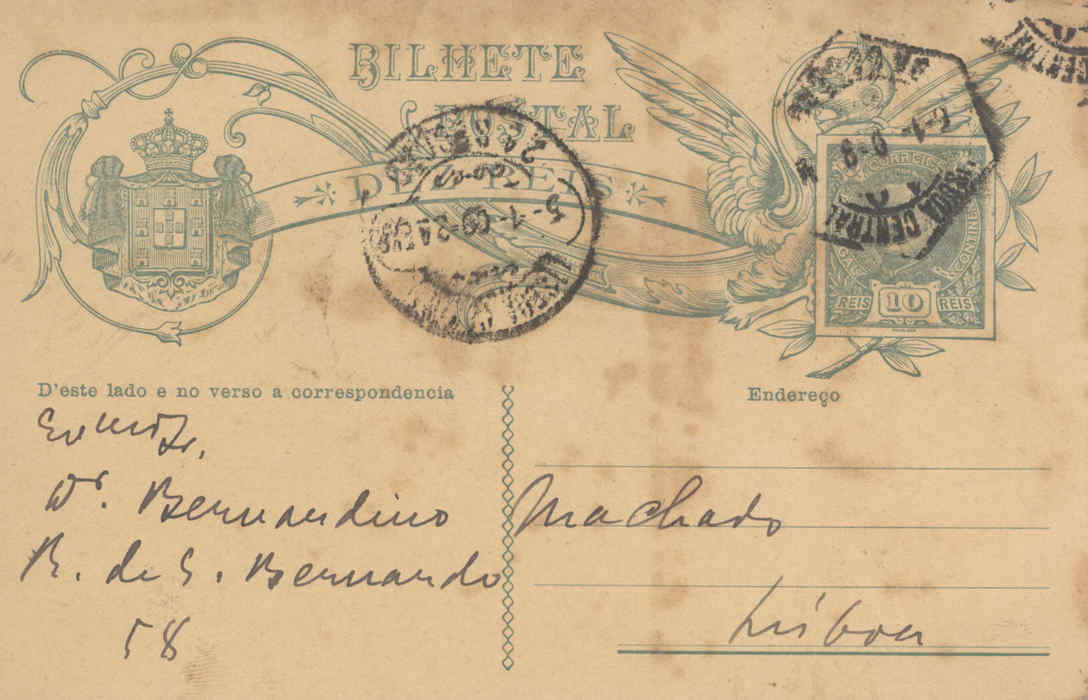 BILHETE
POSTAL
DE 10 REIS
CORREIOS
REIS 10 REIS
LISBOA CENTRAL
CENTRAL
5-1-09
D'este lado e no verso a correspondencia
Endereço
Exmo Sr.
Dr. Bernardino Machado
R. de S. Bernardo
58
Lisboa